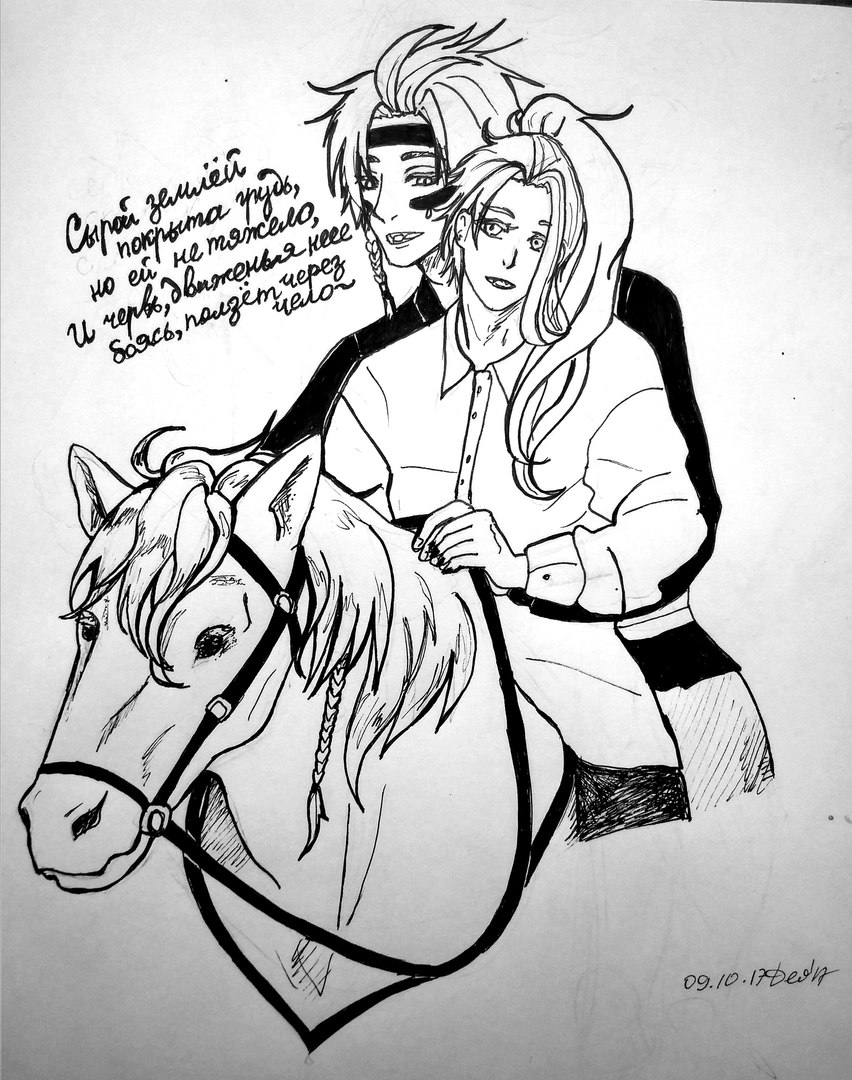 Сырой землёй
покрыта грудь,
но ей не тяжело,
И червь, движенья не
боясь, ползёт через
чело~
09.10.17